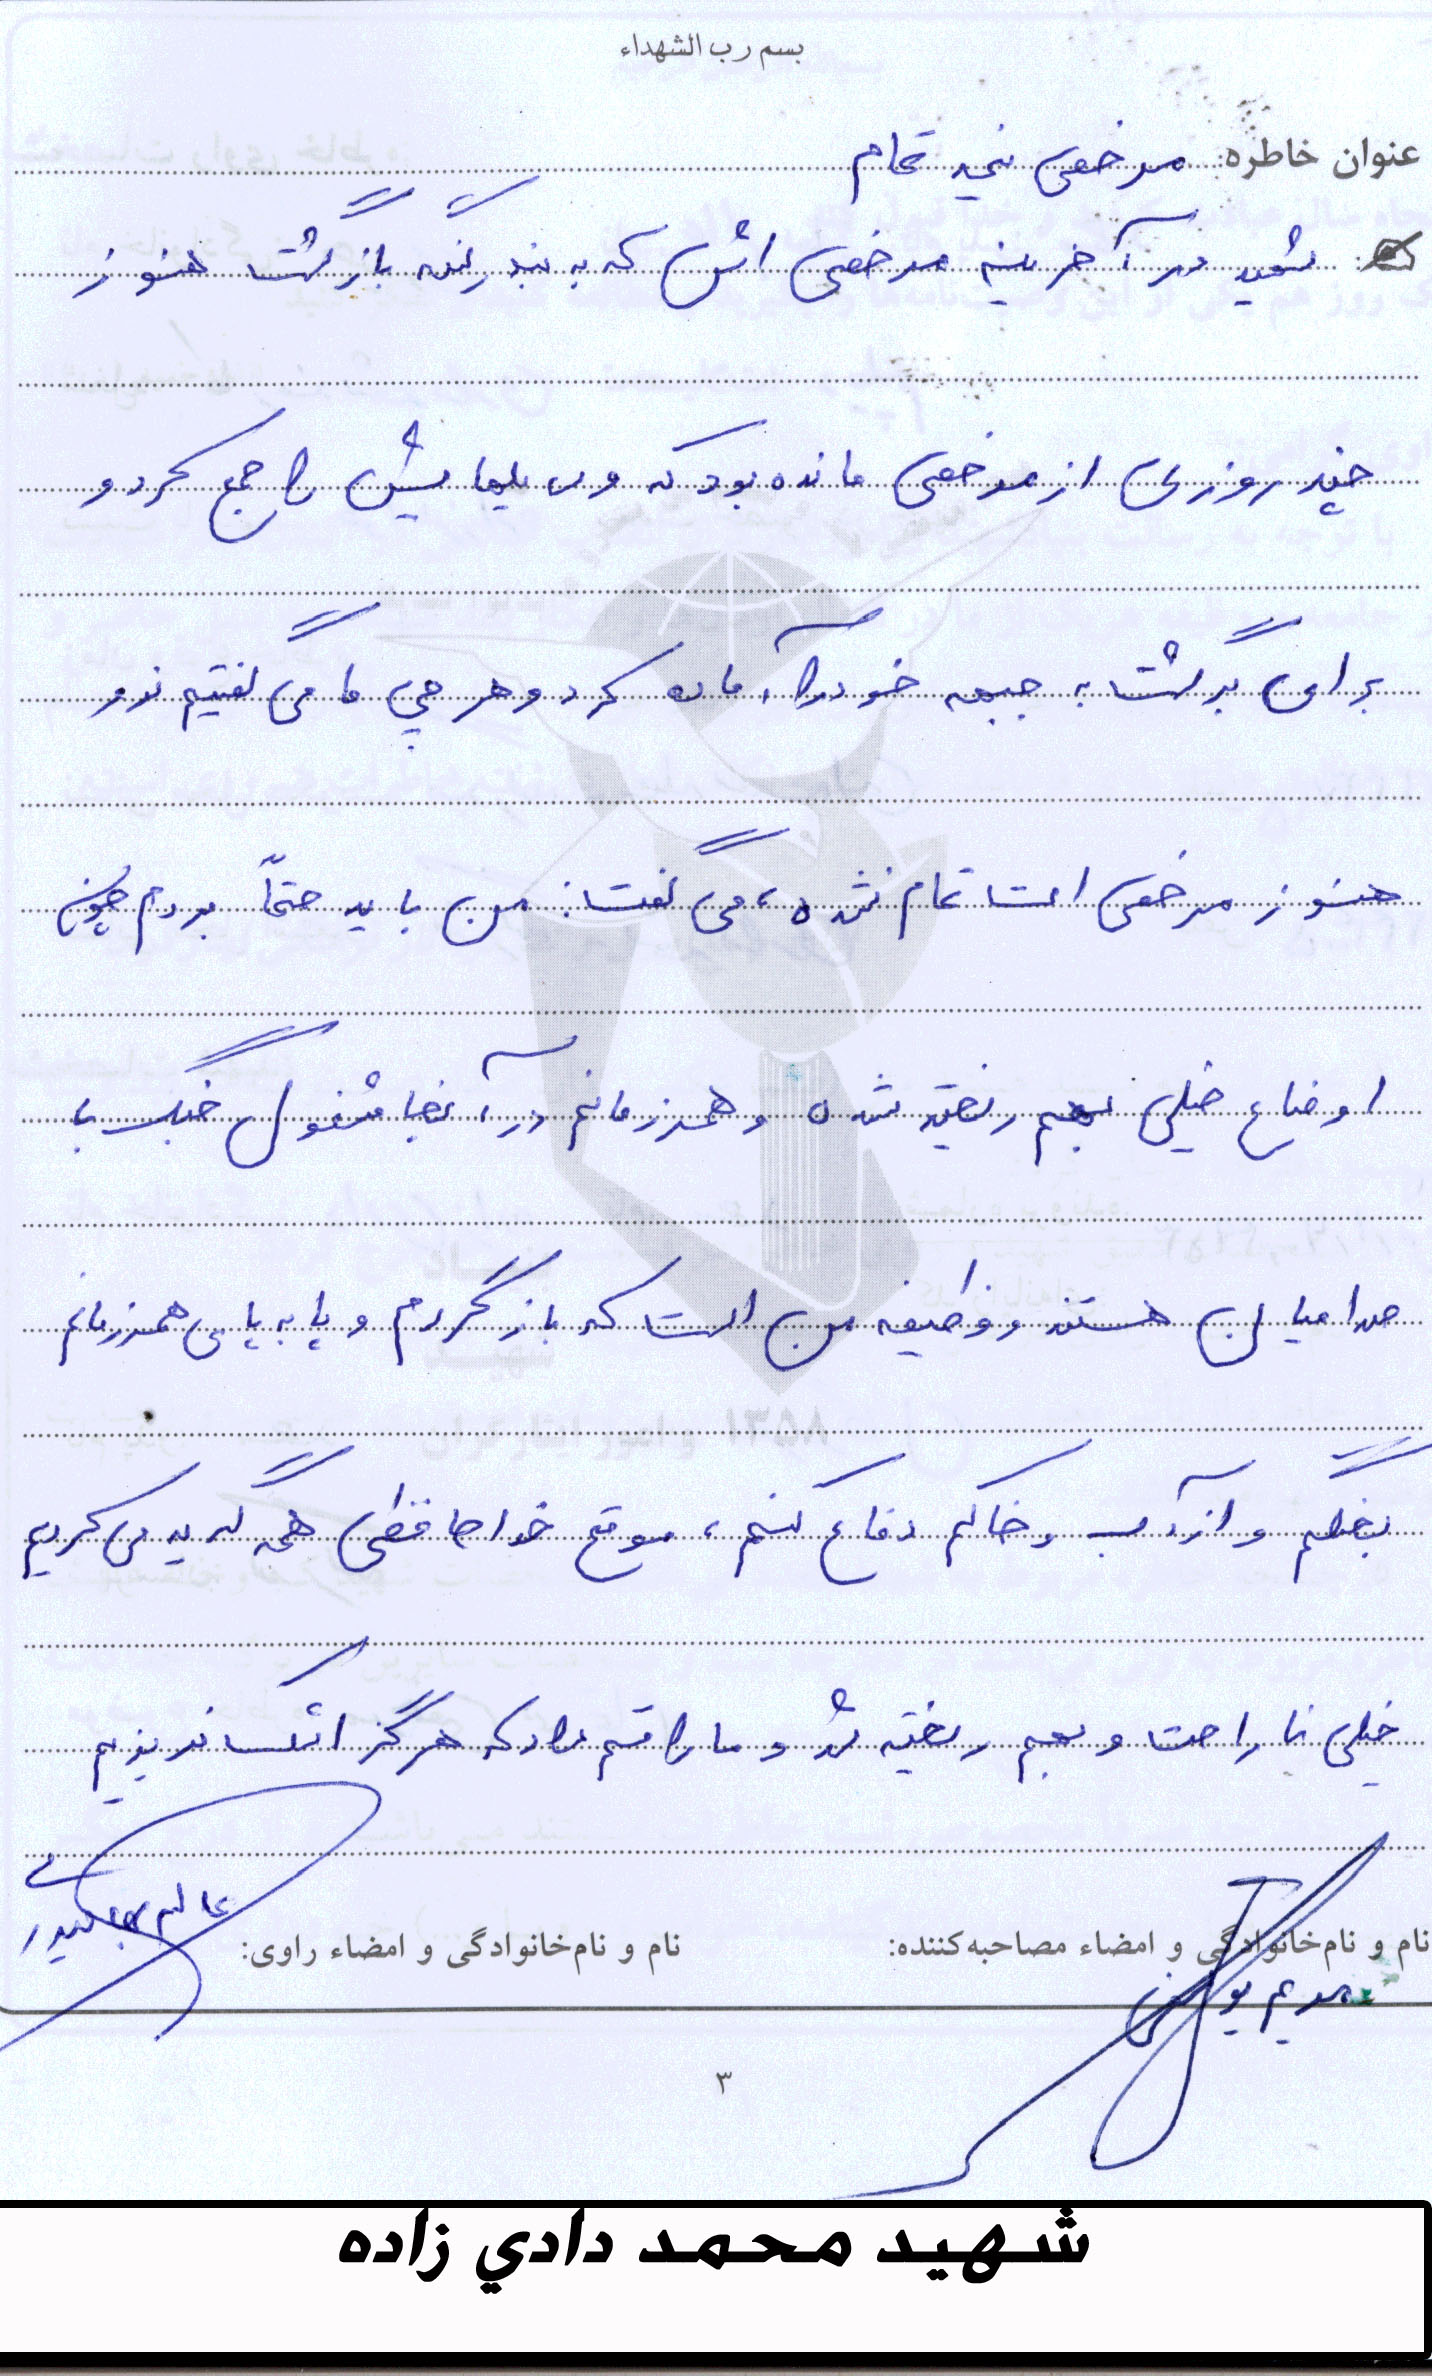 بسم رب الشهداء
عنوان خاطره: مرخصی نیمه تمام
شهید در آخرین مرخصی اش که به بندرلنگه بازگشت هنوز
چند روزی از مرخصی مانده بود که وسایلهایش را جمع کرد و
برای برگشت به جبهه خود را آماده کرد و هر چی ما می گفتیم نرو
هنوز مرخصی ات تمام نشده، می گفت: من باید حتماً بروم چون
اوضاع خیلی بهم ریخته شده و همرزمانم در آنجا مشغول جنگ با
صدامیان هستند و وظیفه من است که بازگردم و پا به پای همرزمانم
بجنگم و از آب و خاکم دفاع کنم، موقع خداحافظی همه گریه می کردیم
خیلی ناراحت و بهم ریخته شد و ما را قسم داد که هرگز اشک نریزیم
نام و نام‌خانوادگی و امضاء مصاحبه‌کننده:
نام و نام‌خانوادگی و امضاء راوی:
مریم
۳
شهید محمد دادي زاده